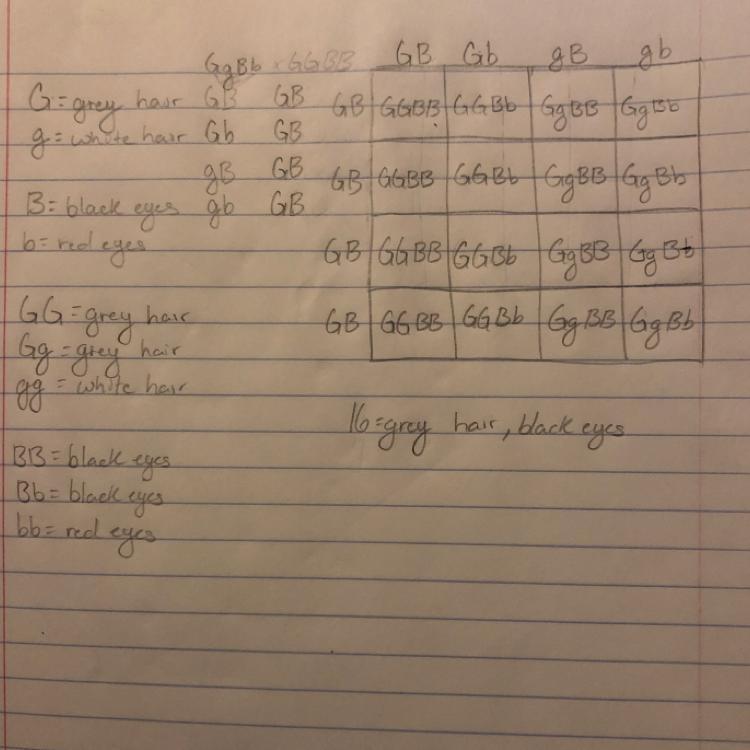 GgBb × GGBB
G = grey hair
g = white hair
B = black eyes
b = red eyes
GB GB
Gb GB
gB GB
gb GB
GG = grey hair
Gg = grey hair
gg = white hair
BB = black eyes
Bb = black eyes
bb = red eyes
GB Gb gB gb
GB GGBB GGBb GgBB GgBb
GB GGBB GGBb GgBB GgBb
GB GGBB GGBb GgBB GgBb
GB GGBB GGBb GgBB GgBb
16 = grey hair, black eyes